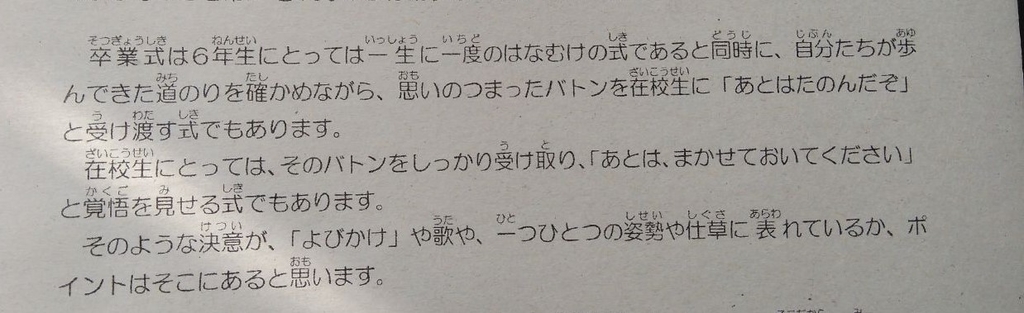 卒業式は6年生にとっては一生に一度のはなむけの式であると同時に、自分たちが歩
んできた道のりを確かめながら、思いのつまったバトンを在校生に「あとはたのんだぞ」
と受け渡す式でもあります。
在校生にとっては、そのバトンをしっかり受け取り、「あとは、まかせておいてください」
と覚悟を見せる式でもあります。
そのような決意が、「よびかけ」や歌や、一つひとつの姿勢や仕草に表れているか、ポ
イントはそこにあると思います。